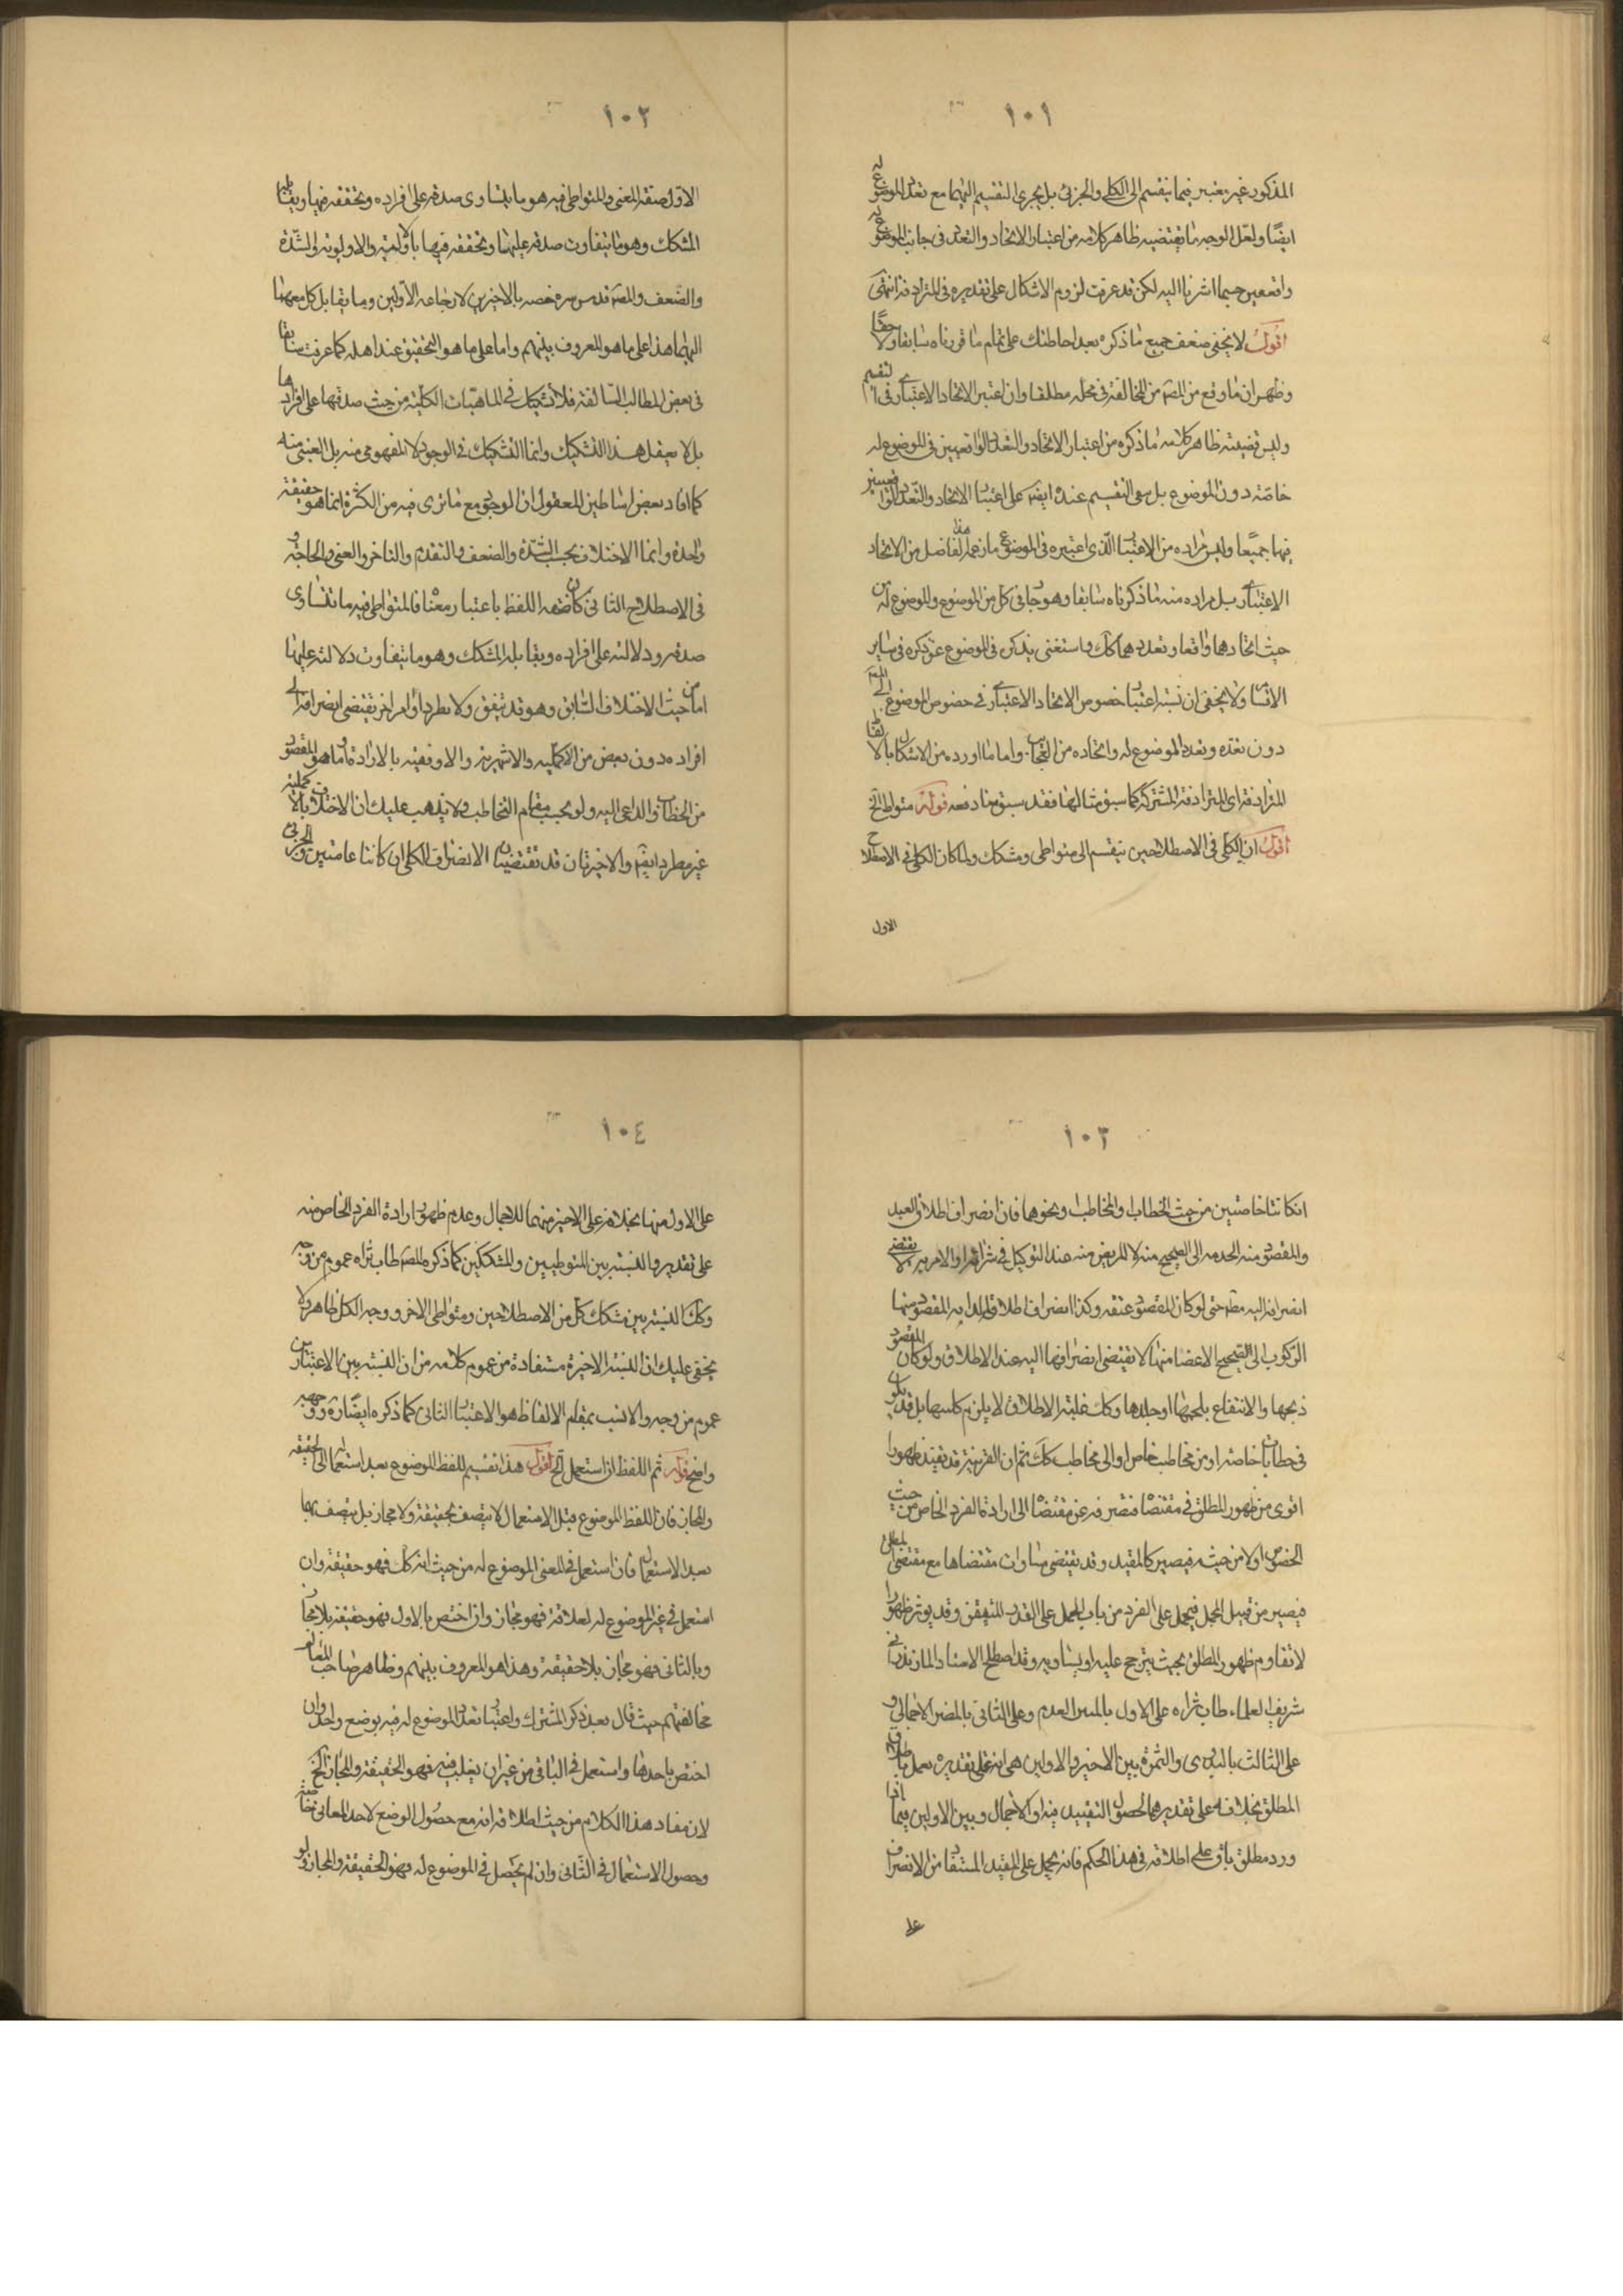 ١٠١
المذكور غير معتبر فيما ينقسم الى الكلى والجزئى بل يجرى التقسيم اليهما مع تعدد الموضوع له
ايضًا ولعل الوجه ما يقتضيه ظاهر كلامه من اعتبار الاتحاد والتعدد فى جانب الموضوع له
واقعيين حسبما اشرنا اليه لكن قد عرفت لزوم الاشكال على تقديره فى المترادفة انتهى
اقول لا يخفى ضعف جميع ما ذكره بعد احاطتك على تمام ما قررناه سابقا ولاحقًا
وظهر ان ما وقع من المص من المخالفة فى محله مطلقا وان اعتبر الاتحاد الاعتبارى فى التقسيم
وليس قضيته ظاهر كلامه ما ذكره من اعتبار الاتحاد والتعدد الواقعيين فى الموضوع له
خاصّة دون الموضوع بل بنى التقسيم عنده ايضا على اعتبار الاتحاد والتعدد الواقعيين
فيها جميعًا وليس مراده من الاعتبار الذى اعتبره فى الموضوع ما زعمه هذا الفاضل من الاتحاد
الاعتبارى بل مراده منه ما ذكرناه سابقا وهو جار فى كل من الموضوع والموضوع له من
حيث اتحادهما واقعا وتعددهما كك واستغنى بذكره فى الموضوع عن ذكره فى ساير
الاقسام ولا يخفى ان نسبة اعتبار خصوص الاتحاد الاعتبارى فى خصوص الموضوع الى المص
دون تعدده وتعدد الموضوع له واتحاده من العجايب واما ما اورده من الاشكال بالالفاظ
المترادفة اى المترادفة المشتركة كما سبق مثالها فقد سبق منا دفعه قوله متواطى الخ
اقول ان الكلى فى الاصطلاحين ينقسم الى متواطى ومشكك ولما كان الكلى فى الاصطلاح
الاول
١٠٢
الاول صفة المعنى والمتواطى فيه هو ما يتساوى صدقه على افراده وتحققه فيها ويقابله
المشكك وهو ما يتفاوت صدقه عليها وتحققه فيها بالاولية والاولوية او الشدّة
والضعف والمص قدس سره خصه بالاخيرين لارجاعه الاولين وما يقابل كل منهما
اليهما هذا على ما هو المعروف بينهم واما على ما هو التحقيق عند اهله كما عرفت سابقا
فى بعض المطالب السالفة فلا تشكيك فى الماهيات الكلية من حيث صدقها على افرادها
بل لا يعقل هذا التشكيك وانما التشكيك فى الوجود لا المفهومى منه بل العينى منه
كما افاد بعض اساطين المعقول ان الوجود مع ما ترى فيه من الكثرة انما هو حقيقة
واحدة وانما الاختلاف بحسب الشدّة والضعف والتقدم والتاخر والغنى والحاجة و
فى الاصطلاح الثانى كان صفه اللفظ باعتبار معناه فالمتواطى فيه ما تتساوى
صدقه ودلالته على افراده ويقابله المشكك وهو ما يتفاوت دلالته عليها
اما من حيث الاختلاف السابق وهو قد يتفق ولا يطرد او امر اخر يقتضى انصرافه الى
افراده دون بعض من الاكملية والاشهرية والاوفقية بالارادة وما هو المقصود
من الخطاب والداعى اليه ولو بحسب مقام التخاطب ولا يذهب عليك ان الاختلاف بالاكملية
غير مطرد ايضا والاخيرتان قد تقتضيان الانصراف الكلى ان كانتا عامتين والجزئى
١٠٣
ان كانتا خاصتين من حيث الخطاب والمخاطب ونحوهما فان انصراف اطلاق العبد
والمقصود منه الخدمه الى الصحيح منه لا المريض منه عند التوكيل فى شرائه او الامر به لا يقتضى
انصرافه اليه مطلقا حتى لو كان المقصود عتقه وكذا انصراف اطلاق الدابه المقصود منها
الركوب الى الصحيح الاعضا منها لا يقتضى انصرافها اليه عند الاطلاق ولو كان المقصود
ذبحها والانتفاع بلحمها او جلدها وكك غلبة الاطلاق لا يلزم كليتها بل قد يكون
فى خطابات خاصة او من مخاطب خاص او الى مخاطب كك ثم ان القرينة قد تفيد ظهورا
اقوى من ظهور المطلق فى مقتضاه فتصرفه عن مقتضاه الى ارادة الفرد الخاص من حيث
الخصوص او لا من حيثه فيصير كالمقيد وقد يقتضى مساوات مقتضاها مع مقتضى المطلق
فيصير من قبيل المجمل فيحمل على الفرد من باب الحمل على القدر المتيقن وقد يوثر ظهورا
لا تقاوم ظهور المطلق بحيث يترجح عليه او يساويه وقد اصطلح الاستاد المازندرانى
شريف العلماء طاب ثراه على الاول بالمبين العدم وعلى الثانى بالمضر الاجمالى و
على الثالث بالبدوى والثمرة بين الاخير والاولين هى انه على تقديره يعمل باطلاق
المطلق بخلافه على تقديرهما لحصول التقييد فيه او الاجمال وبين الاولين فيما اذا
ورد مطلق باق على اطلاقه فى هذا الحكم فانه يحمل على المقيد المستفاد من الانصراف
على
١٠٤
على الاول منها بخلافه على الاخير منهما للاجمال وعدم ظهور ارادة الفرد الخاص منه
على تقديره والنسبة بين المتواطيين والمشككين كما ذكره المص طاب ثراه عموم من وجه
وكك النسبة بين مشكك كل من الاصطلاحين ومتواطى الاخر ووجه الكل ظاهر ولا
يخفى عليك ان النسبة الاخيرة مستفادة من عموم كلامه من ان النسبة بين الاعتبارين
عموم من وجه والانسب بمقام الالفاظ هو الاعتبار الثانى كما ذكره ايضًا ره ووجهه
واضح قوله ثم اللفظ ان استعمل الخ اقول هذا تقسيم للفظ الموضوع بعد استعماله الى الحقيقة
والمجاز فان اللفظ الموضوع قبل الاستعمال لا يتصف بحقيقة ولا مجاز بل يتصف بهما
بعد الاستعمال فان استعمل فى المعنى الموضوع له من حيث انه كك فهو حقيقة وان
استعمل فى غير الموضوع له لعلاقة فهو مجاز وان اختص بالاول فهو حقيقة بلا مجاز
وبالثانى فهو مجاز بلا حقيقة وهذا هو المعروف بينهم وظاهر صاحب المعالم
مخالفتهم حيث قال بعد ذكر المشترك واعتبار تعدد الموضوع له فيه بوضع واحد وان
اختص باحدها واستعمل فى الباقى من غير ان يغلب فيه فهو الحقيقة والمجاز الخ
لان مفاد هذا الكلام من حيث اطلاقه انه مع حصول الوضع لاحد المعانى
وحصول الاستعمال فى الثانى وان لم يحصل فى الموضوع له فهو الحقيقة والمجاز ولو